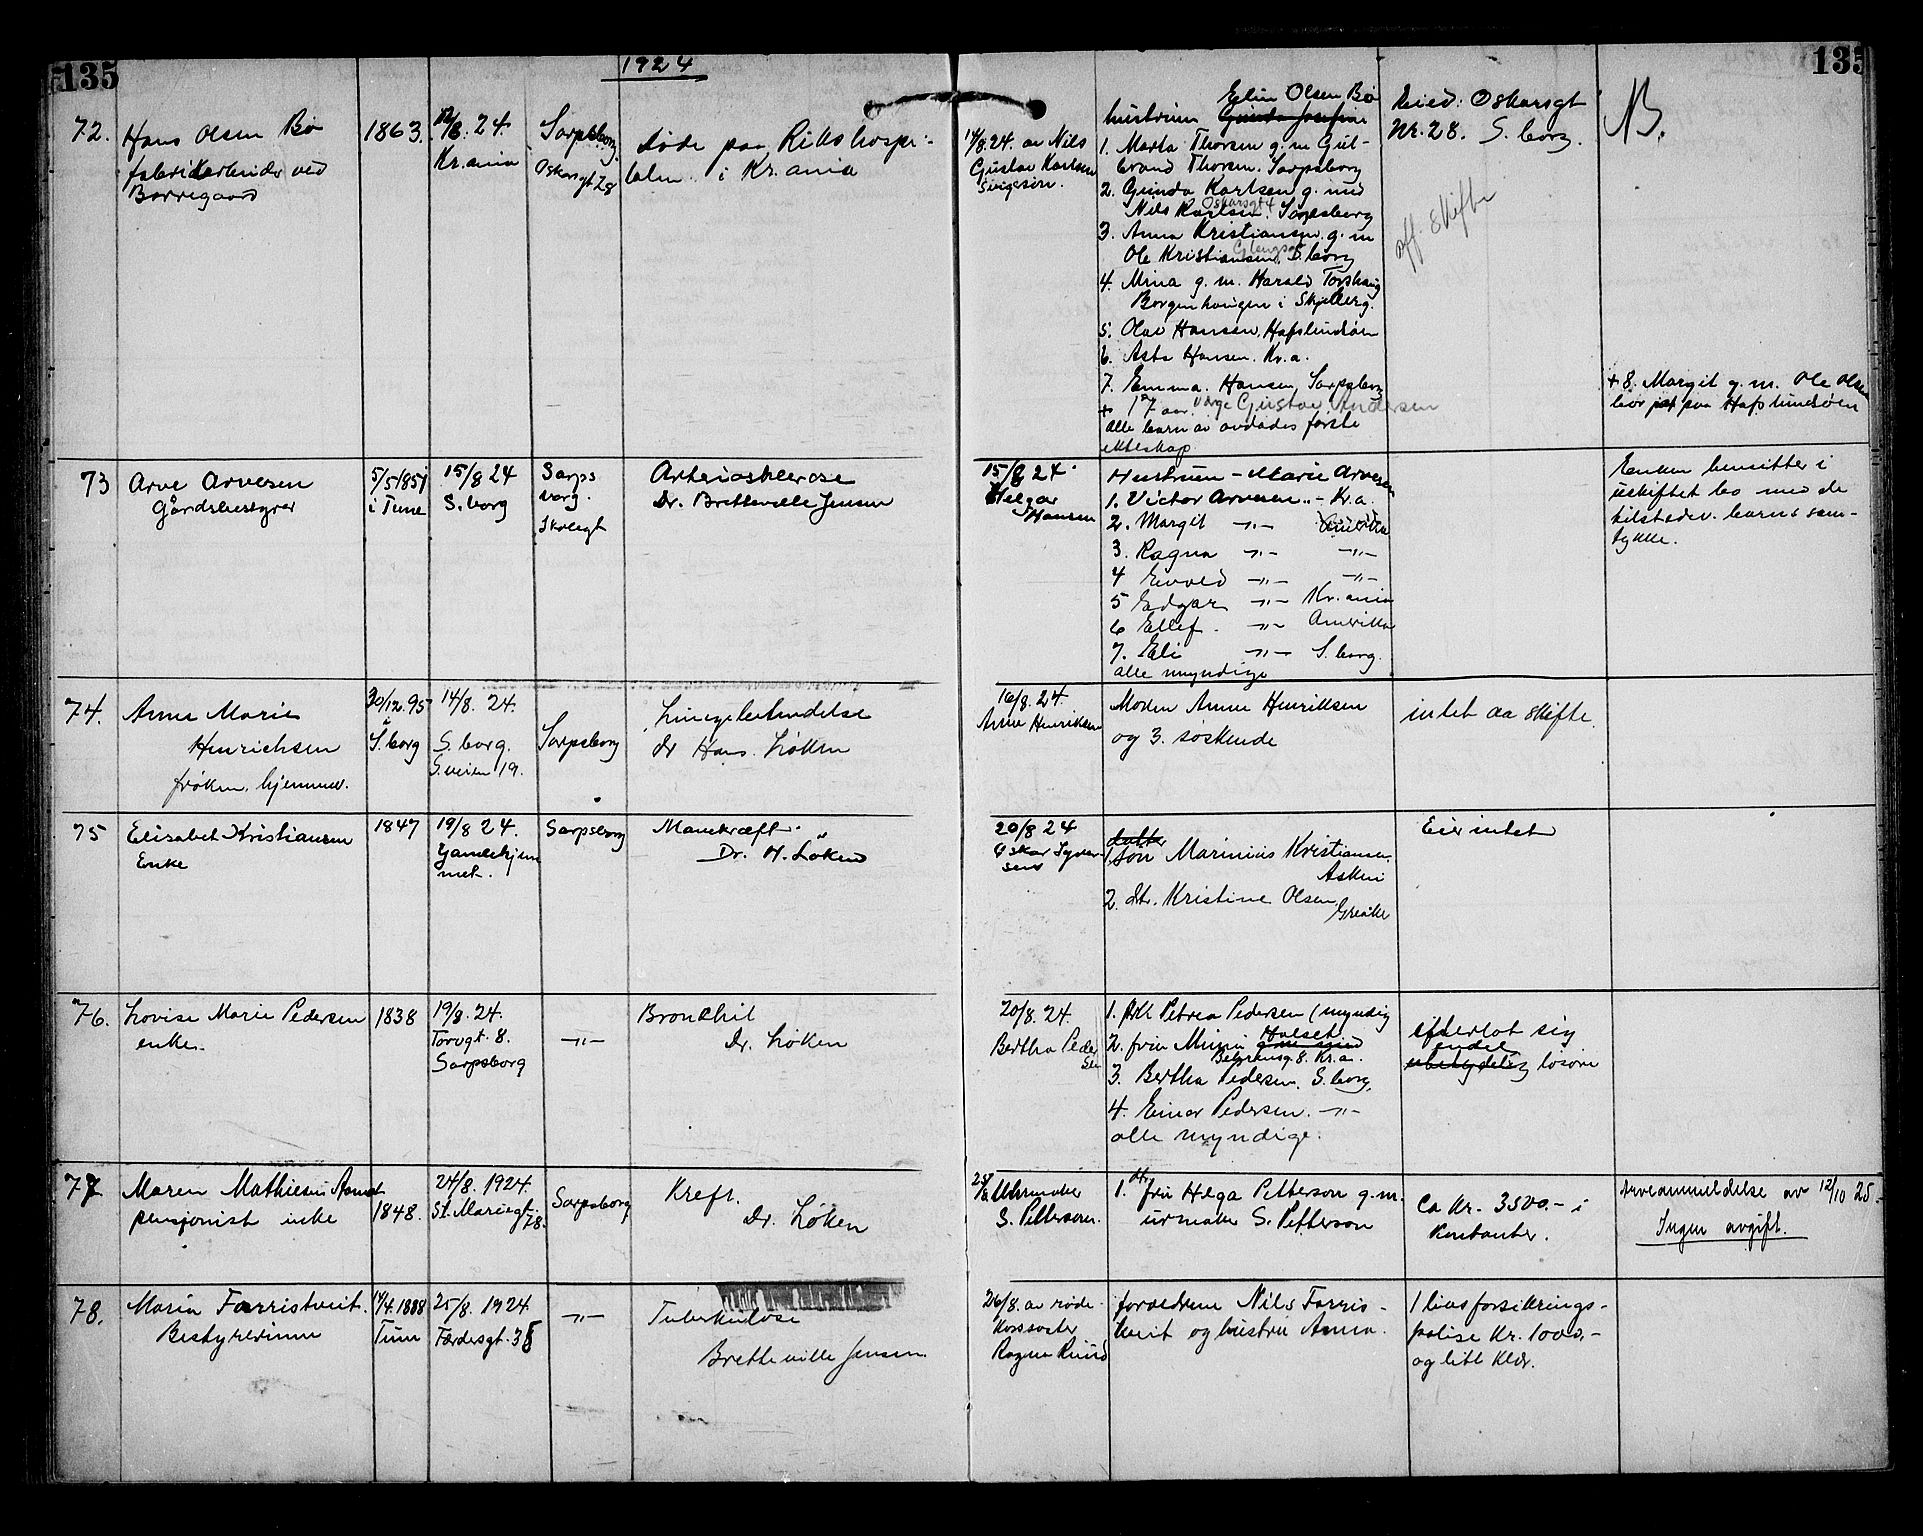 135
1924
135
72.
Hans Olsen Bø
fabrikarbeider ved
Borregaard
1863.
12/8. 24.
Kr.ania
Sarpsborg.
Oskarsgt 28
døde paa Rikshospi-
talen i Kr.ania
14/8.24. av Nils
Gustav Karlsen
svigersøn.
Elin Olsen Bø
hustruen Gunda Josefine
1. Marta Thorsen g. m Gul-
brand Thorsen. Sarpsborg
2. Gunda Karlsen g. med
Oskarsgt 4
Nils Karlsen. Sarpsborg
3. Anna Kristiansen g. m
Glengsgt
Ole Kristiansen. S.borg
4. Mina g. m. Harald Torshaug
Borgenhaugen i Skjeberg.
5. Olav Hansen, Hafslundsøen
6. Asta Hansen. Kr.a.
7. Emma. Hansen, Sarpsborg
+ 17 aar. verge Gustav Andersen
alle barn av avdødes første
ekteskap
Eied: Oskarsgt
Nr. 28. S. borg.
off. skifte
B.
+ 8. Margit g. m. Ole Olsen
bor paa Hafslundsøen
73
Arve Arvesen
Gårdsbestyrer
5/5 1851
i Tune
15/8 24
S. borg
Sarps
borg.
Skolegt
Arteriosklerose
Dr. Bretteville Jensen
15/8 24.
Helgar
Hansen
Hustruen - Marie Arvesen
1. Victor Arvesen.. - Kr.a.
2. Margit —„— Amerika
3. Ragna —„— —„—
4 Eivold —„— —„—
5 Edgar —„— Kr.ania
6 Ellef. —„— Amerika
7. Eli —„— S. borg.
alle myndige
Enken hensitter i
uskiftet bo med de
tilstedev. barns sam-
tykke.
74.
Anna Marie
Henrichsen
frøken, hjemmev.
30/12.95
S. borg
14/8. 24.
S. borg.
S.veien 19.
Sarpsborg
Lungebetendelse
dr Hans. Løken
16/8. 24.
Anna Henriksen
Moren Anna Henriksen
og 3. søskende
intet aa skifte.
75
Elisabet Kristiansen
Enke
1847
19/8 24.
Gamlehjem
met.
Sarpsborg
Mavekræft.
Dr. H. Løken
20/8 24
Oskar Syver-
sen
datter
1. søn Marinius Kristiansen.
Askim
2. dtr. Kristine Olsen,
Greaker
Eier intet
76.
Lovise Marie Pedersen
enke.
1838
19/8. 24.
Torvgt. 8.
Sarpsborg
—„—
Bronkhit
Dr. Løken
20/8. 24.
Bertha Peder
sen
1. frk Petrea Pedersen (myndig
2. fru Minni Holseth
Kr.a.
3. Bertha Pedersen. S. borg.
4. Einar Pedersen. —„—
alle myndige.
efterlot sig
endel
ubetydelig løsøre
77
Maren Mathiesen
pensjonist enke
1848.
24/8. 1924.
St. Mariegt.
78.
Sarpsborg
Kreft.
Dr. Løken
Uhrmaker
S. Pettersen.
1. dtr fru Helga Petterson g. m.
urmaker S. Petterson
Ca Kr. 3500.- i
kontanter.
Arveanmeldelse av 12/10 25.
Ingen avgift.
78.
Maria Farristveit.
Bestyrerinne
14/4. 1888
Tune
25/8. 1924.
Færdersgt. 38
—„—
Tuberkulose
Bretteville Jensen.
26/8. av røde-
korssøster
Ragna Ruud
forældrene Nils Farris-
tveit og hustru Anna.
1 livsforsikrings-
polise Kr. 1000.-
og litt klær.